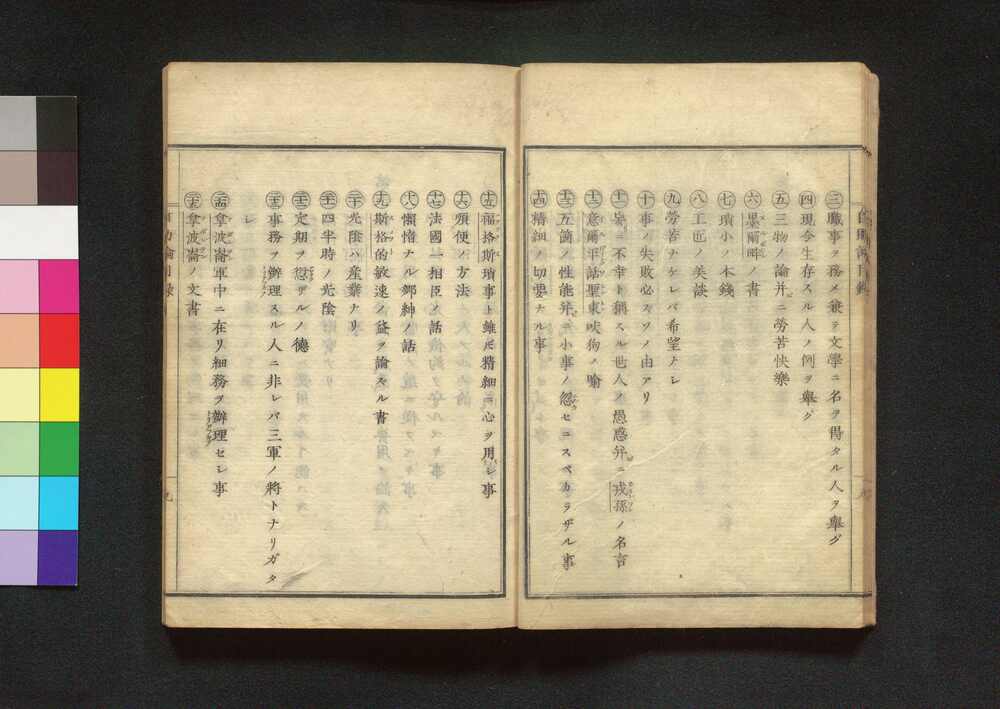 ㊂職事ヲ務メ兼ヲ文學ニ名ヲ得タル人ヲ擧グ
㊃現今生存スル人ノ例ヲ擧グ
㊄三物ノ論并ニ勞苦快樂
㊅墨爾畔ノ書
㊆瑣小ノ本錢
㊇工匠ノ美談
㊈勞苦ナケレバ希望ナシ
㊉事ノ失敗必ズソノ由アリ
十一 毎ニ不幸ト稱スル世人ノ愚惑并ニ戎孫ノ名言
十二 意爾平話聖東吠狗ノ喩
十三 五箇ノ性能并ニ小事ノ忽セニスベカラザル事
十四 精細ノ切要ナル事
十五 福格斯瑣事ト雖𪜈精細ニ心ヲ用ヒシ事
十六 順便ノ方法
十七 法國一相臣ノ話
十八 懶惰ナル鄕紳ノ話
十九 斯格的敏速ノ益ヲ論スル書
二十 光陰ハ産業ナリ
二十一 四半時ノ光陰
二十二 定期ヲ愆ザルノ德
二十三 事務ヲ辦理スル人ニ非レバ三軍ノ將トナリガタ
シ
二十四 拿波崙軍中ニ在リ細務ヲ辦理セシ事
二十五 拿波崙ノ文書
九